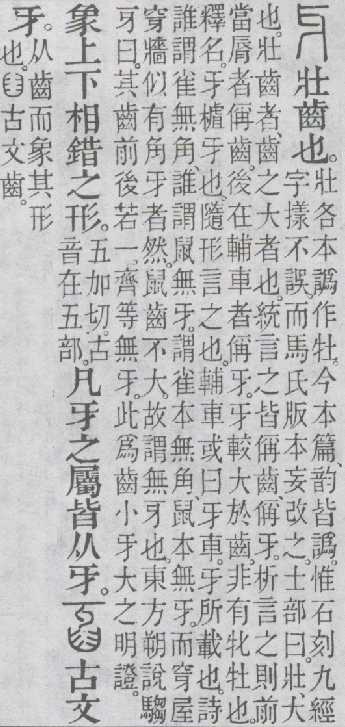 壯齒也。
壯各本譌作牡。今本篇、韵皆譌。惟石刻九經
字樣不誤。而馬氏版本妄改之。士部曰。壯、大
也。壯齒者、齒之大者也。統言之皆稱齒稱牙。析言之則前
當脣者稱齒。後在輔車者稱牙。牙較大於齒。非有牝牡也。
釋名。牙樝牙也。隨形言之也。輔車或曰牙車。牙所載也。詩
誰謂雀無角、誰謂鼠無牙。謂雀本無角、鼠本無牙。而穿屋
穿牆似有角牙者然。鼠齒不大。故謂無牙也。東方朔說騶
牙曰。其齒前後若一。齊等無牙。此爲齒小牙大之明證。
象上下相錯之形。
五加切。古
音在五部。
凡牙之屬皆从牙。古文
牙。
从齒而象其形
也。古文齒。